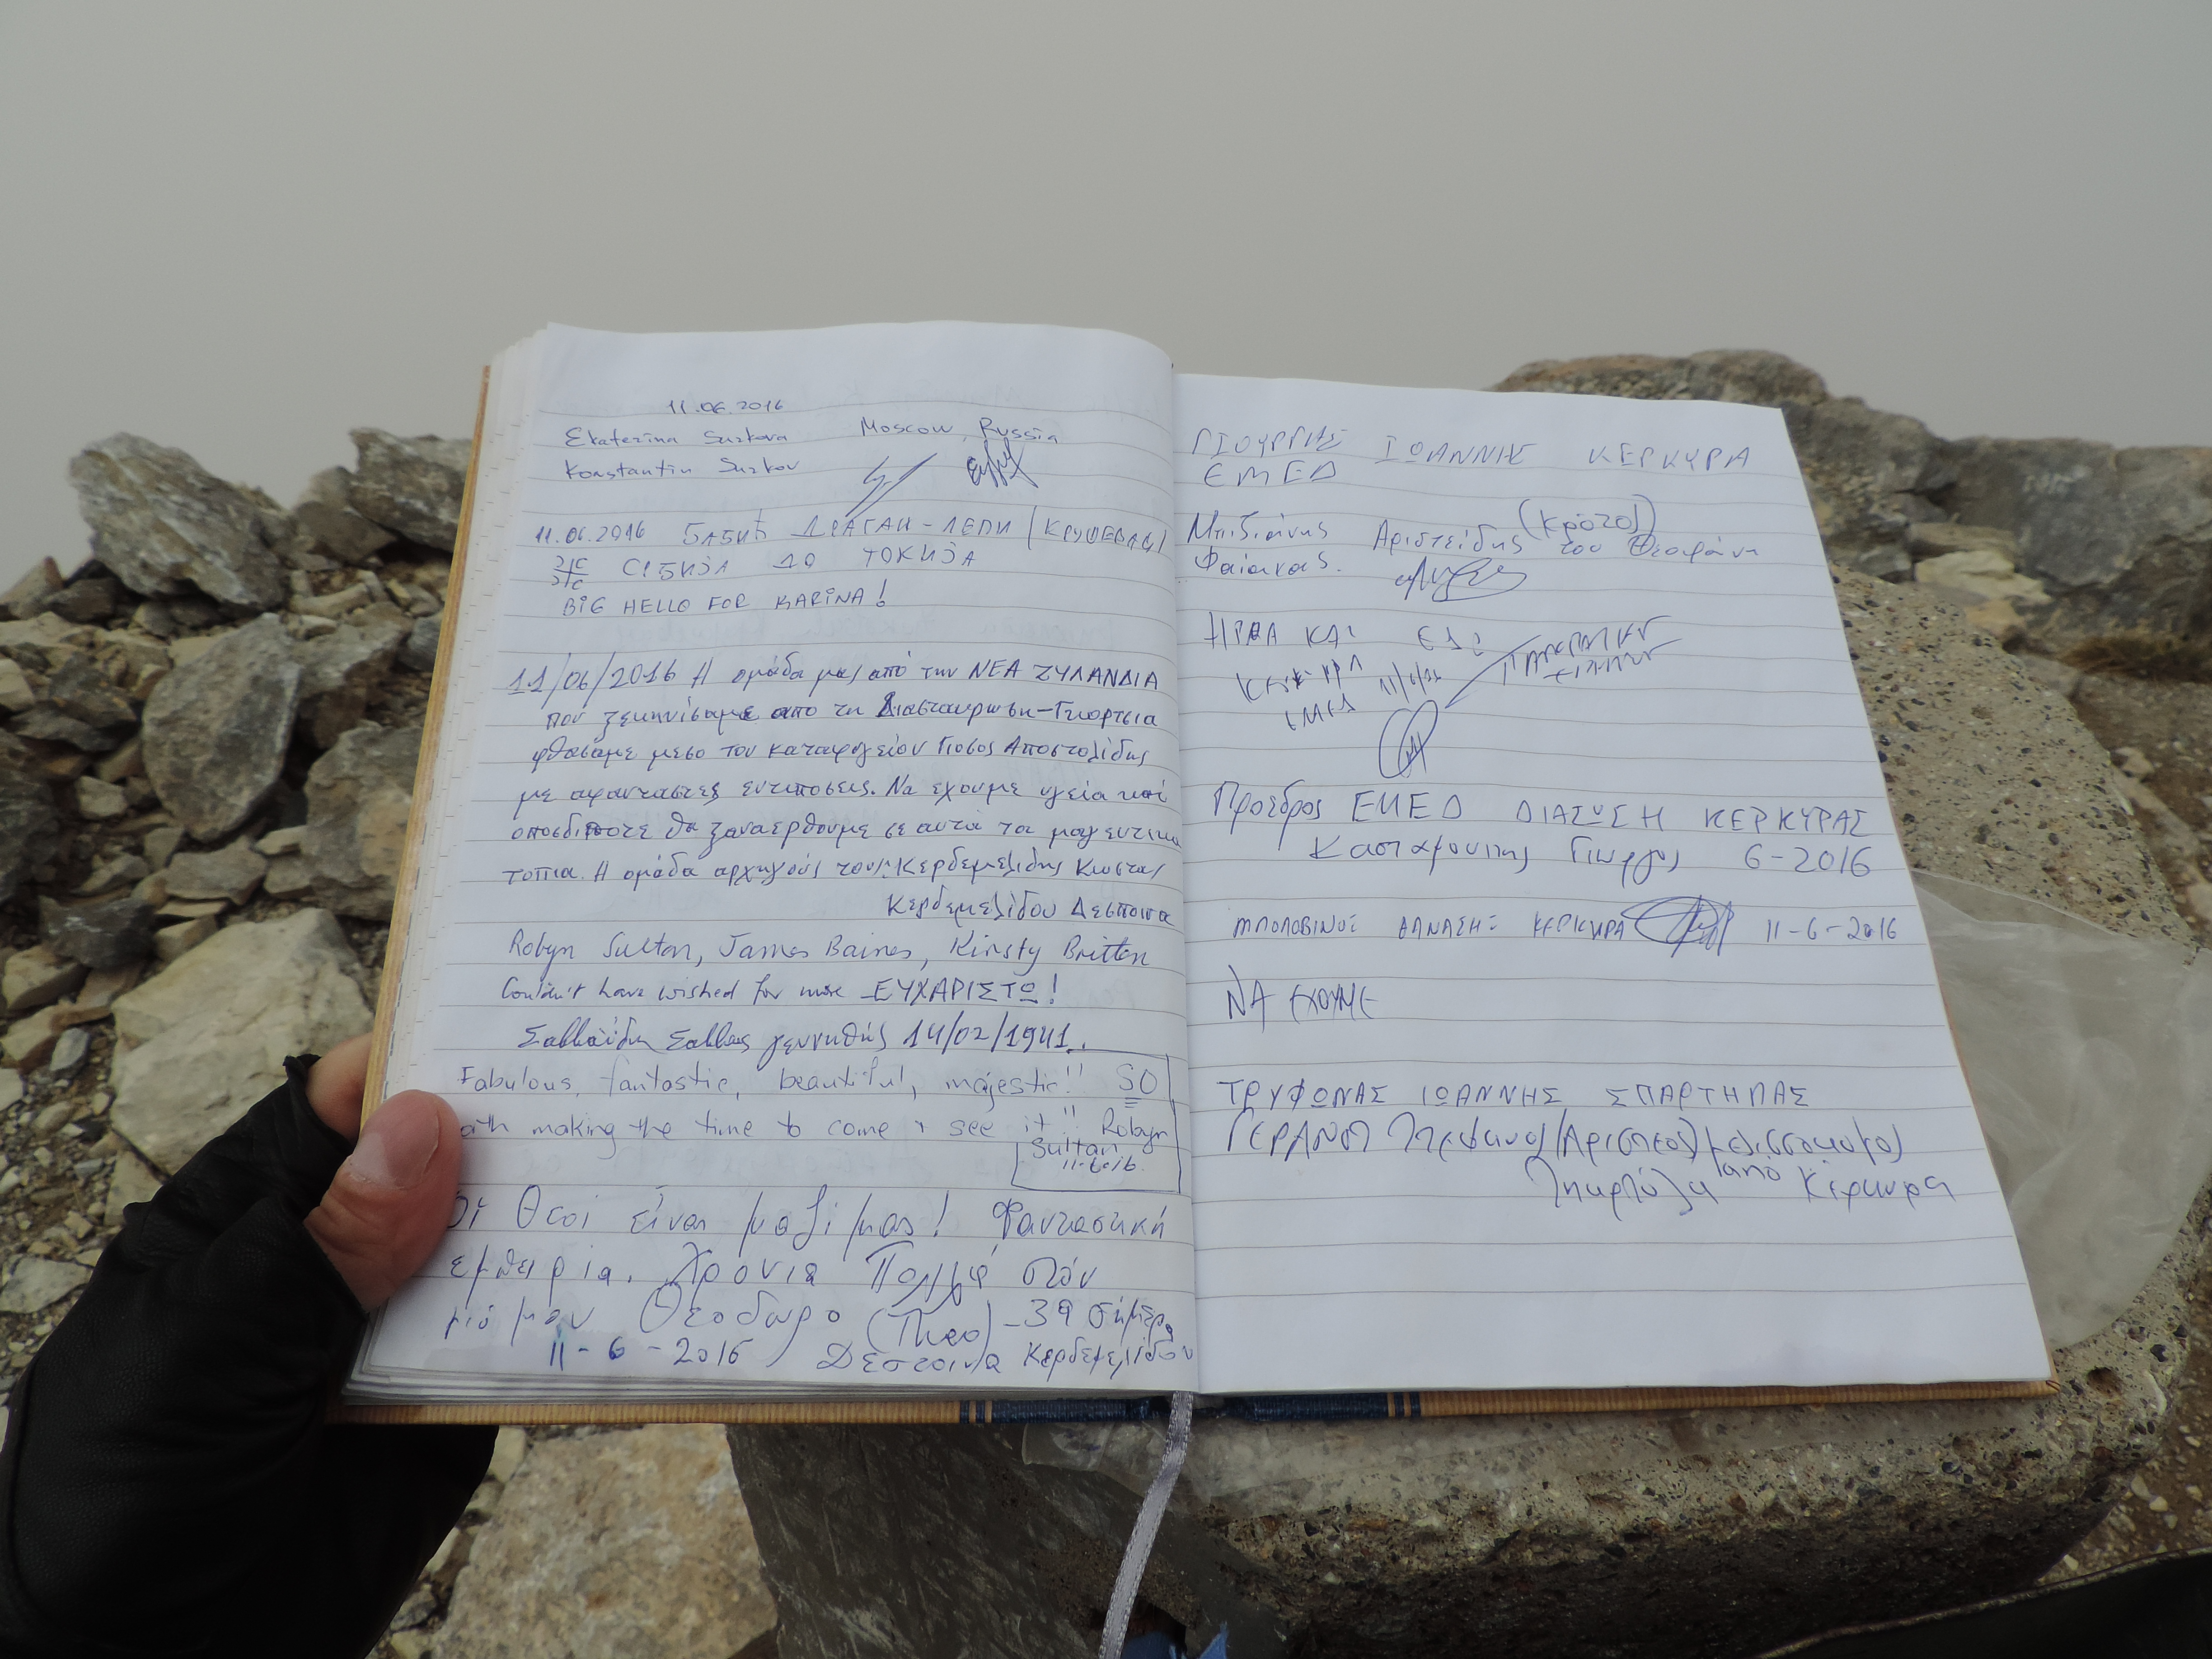 11.06.2016
Ekaterina Surkova Moscow, Russia
Konstantin Surkov
11.06.2016 БАБИЋ ДРАГАН-ЛЕПИ (КРУШЕВАЦ)
СРБИЈА ДО ТОКИЈА
BIG HELLO FOR KARINA!
11/06/2016 Η ομάδα μας από την ΝΕΑ ΖΥΛΑΝΔΙΑ
που ξεκηνίσαμε απο τη Διασταυρωση-Γκορτσια
φθασαμε μεσο του καταφυγείου Γιοσος Αποστολίδης
με αφανταστες εντιποσεις. Να εχουμε υγεία και
οποσδιποτε θα ξαναερθουμε σε αυτα τα μαγευτικα
τοπια. Η ομάδα αρχηγούς τους: Κερδεμελιδης Κωστας
Κερδεμελίδου Δεσποινα
Robyn Sultan, James Baines, Kirsty Britten
Couldn't have wished for more ΕΥΧΑΡΙΣΤΩ!
Σαββαϊδης Σαββας γεννηθής 14/02/1941.
Fabulous, fantastic, beautiful, majestic!! SO
making the time to come & see it!! Robyn
Sultan
11-6-16.
Οί Θεοί είναι μαζί μας! Φανταστική
εμπειρία. Χρονια Πολλά στόν
γιό μου Θεοδωρο (Theo) - 39 σήμερα
11-6-2016 Δεσποινα Κερδεμελίδου
ΓΙΟΥΡΓΗΣ ΙΩΑΝΝΗΣ ΚΕΡΚΥΡΑ
ΕΜΕΔ
Μπιζιάνης Αριστείδης (Κρότο) του Θεοφάνη
Φαίακας.
ΗΡΘΑ ΚΑΙ ΕΔΩ
ΚΕΡΚΥΡΑ 11/6/16
ΕΜΕΔ
Πρόεδρος ΕΜΕΔ ΔΙΑΣΩΣΗ ΚΕΡΚΥΡΑΣ
Κασταμονίτης Γιώργος 6-2016
ΜΠΟΛΟΒΙΝΟΣ ΘΑΝΑΣΗΣ ΚΕΡΚΥΡΑ 11-6-2016
ΝΑ ΕΧΟΥΜΕ
ΤΡΥΦΩΝΑΣ ΙΩΑΝΝΗΣ ΣΠΑΡΤΗΛΑΣ
Στέφανος (Αρισταίος) μελισσοκόμος
από Κέρκυρα